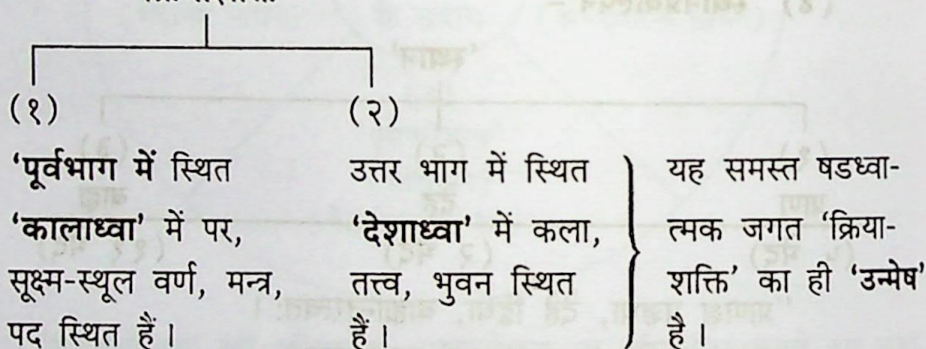 (१)
'पूर्वभाग में स्थित
'कालाध्वा' में पर,
सूक्ष्म-स्थूल वर्ण, मन्त्र,
पद स्थित हैं।
(२)
उत्तर भाग में स्थित
'देशाध्वा' में कला,
तत्त्व, भुवन स्थित
हैं।
यह समस्त षडध्वा-
त्मक जगत 'क्रिया-
शक्ति' का ही 'उन्मेष'
है।